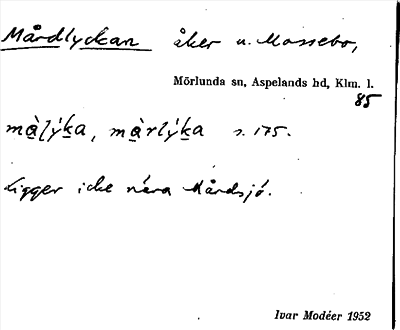 Mårdlyckan åker u. Mossebo,
Mörlunda sn, Aspelands hd, Klm. l.
85
mà̱lýḵa, mà̱rlýḵa s. 175.
Ligger icke nära Mårdsjö.
Ivar Modéer 1952